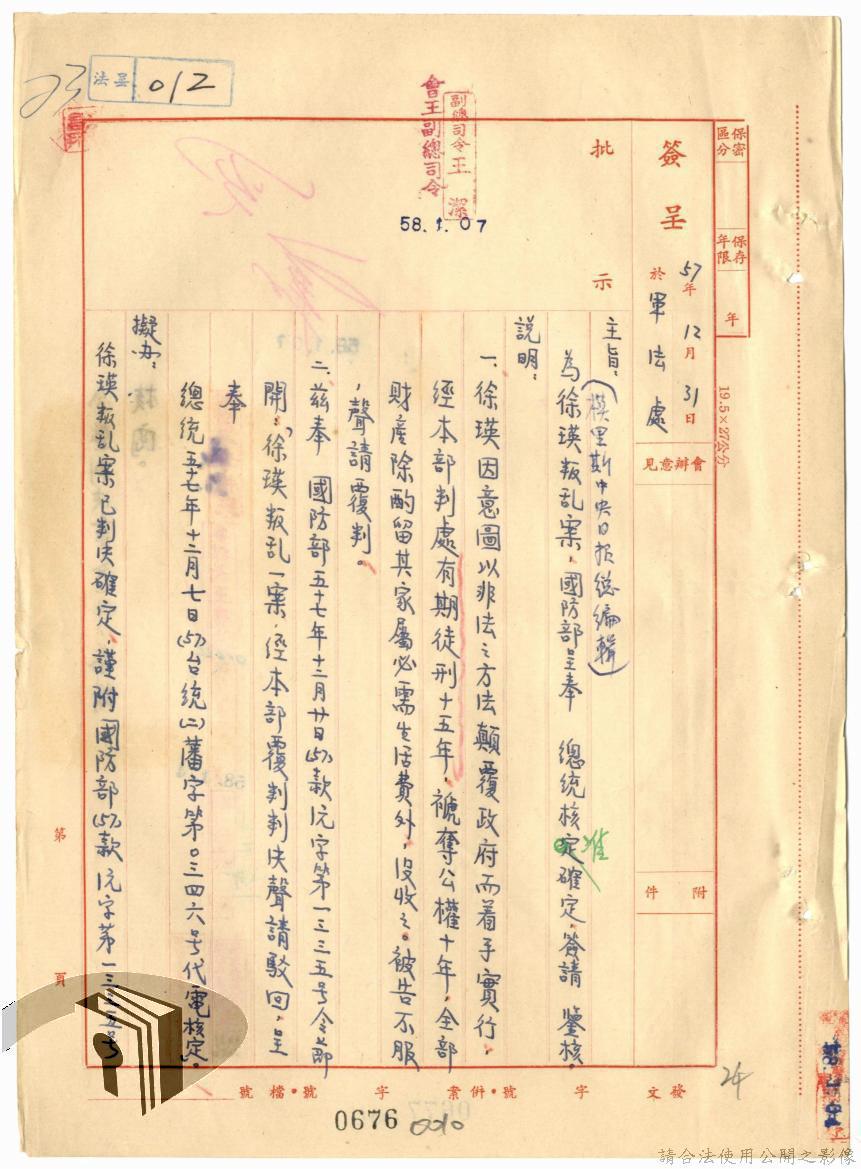 法呈 012
23
會王副總司令
副總司令王潔
58.1.07
保密區分
保存年限
年
19.5×27公分
簽呈
57年12月31日
於軍法處
會辦意見
附件
批示
主旨：(模里斯中央日报總編輯)
為徐瑛叛乱案，國防部呈奉 總統核定確定，簽請 鑒核。
准
説明：
一、徐瑛因意圖以非法之方法顛覆政府而着手實行，
經本部判處有期徒刑十五年，褫奪公權十年，全部
財産除酌留其家屬必需生活費外，没收之。被告不服
，聲請覆判。
二、兹奉 國防部五十七年十二月廿日(57)款沅字第一三三五号令節
開：「徐瑛叛乱一案，經本部覆判判决聲請駁回，呈
奉
總統五十七年十二月七日(57)台統(二)藩字第〇三四六号代電核定。
擬办：
徐瑛叛乱案已判决確定，謹附國防部(57)款沅字第一三三五号
第
頁
發文 字 號・併案 字 號・檔 號
24
0676
0010
請合法使用公開之影像